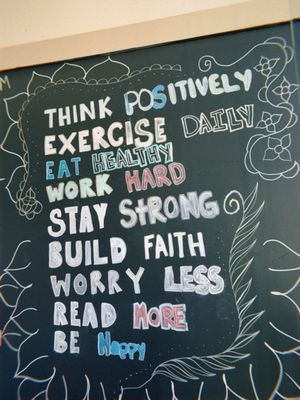 THINK POSITIVELY
EXERCISE DAILY
EAT HEALTHY
WORK HARD
STAY STRONG
BUILD FAITH
WORRY LESS
READ MORE
BE Happy